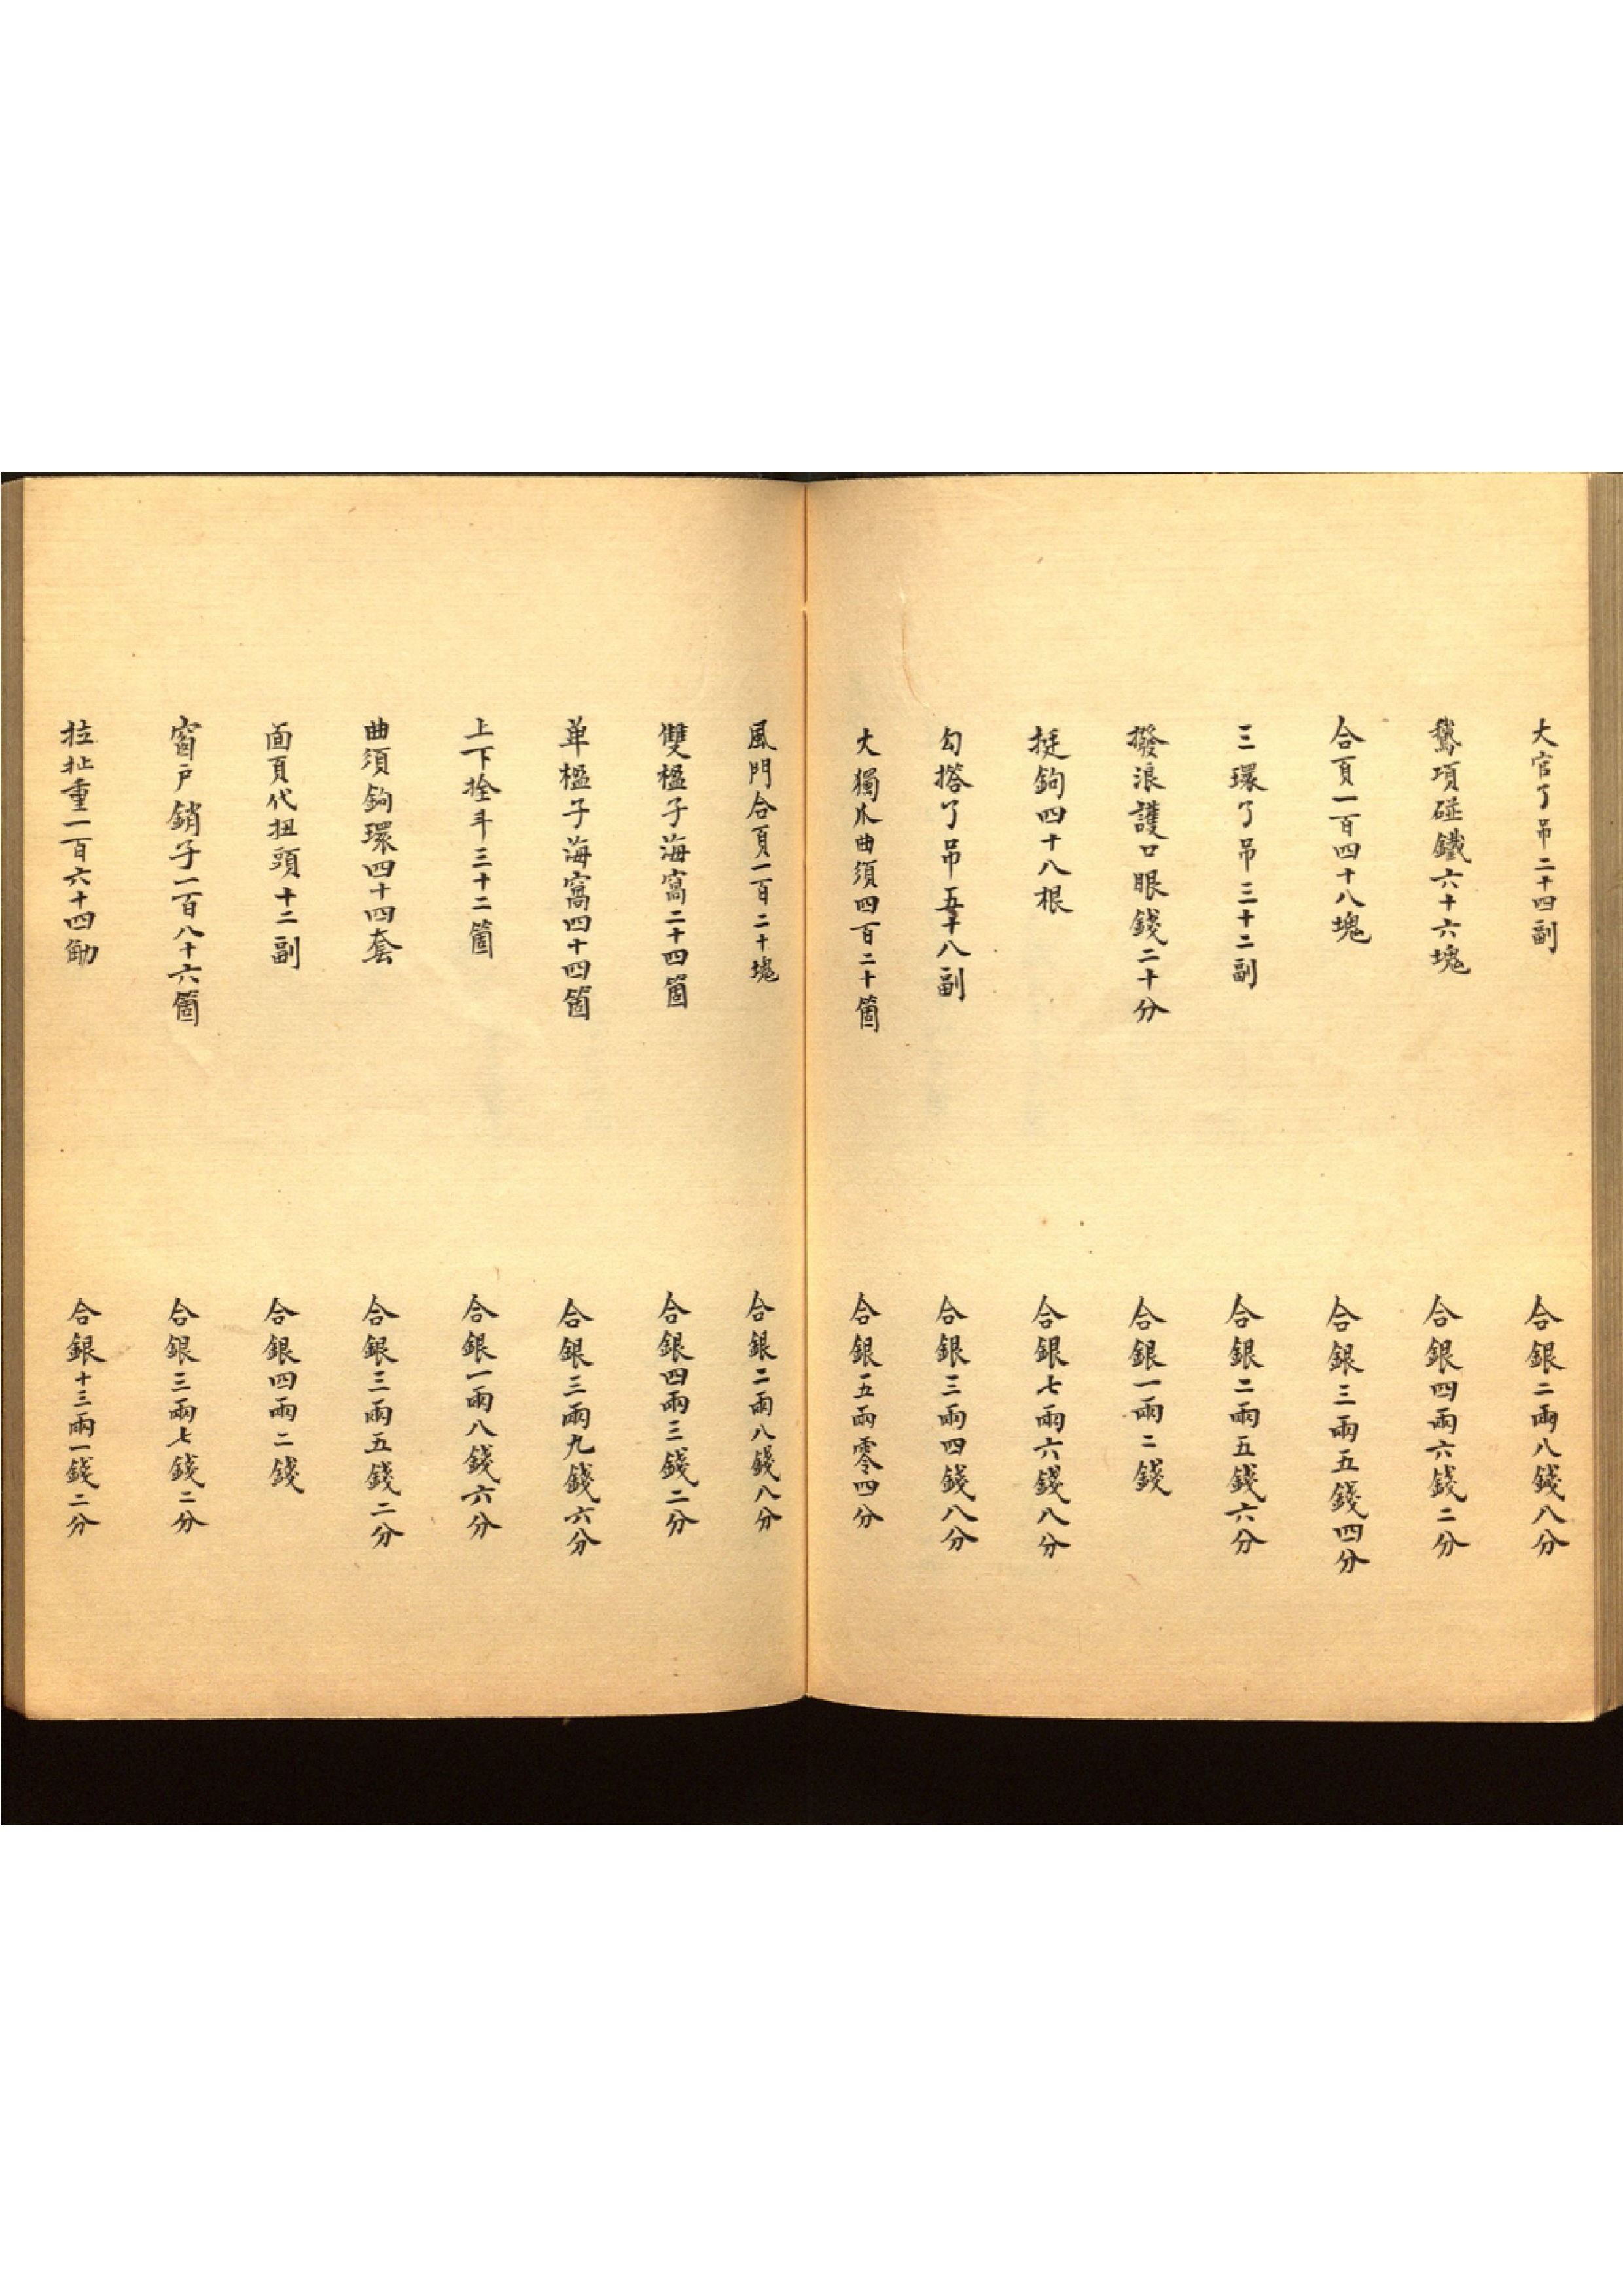 大官了吊二十四副
合銀二兩八錢八分
鵞項碰鐵六十六塊
合銀四兩六錢二分
合頁一百四十八塊
合銀三兩五錢四分
三環了吊三十二副
合銀二兩五錢六分
撥浪護口眼錢二十分
合銀一兩二錢
挺鉤四十八根
合銀七兩六錢八分
勾搭了吊五十八副
合銀三兩四錢八分
大獨爪曲須四百二十箇
合銀五兩零四分
風門合頁一百二十塊
合銀二兩八錢八分
雙楹子海窩二十四箇
合銀四兩三錢二分
单楹子海窩四十四箇
合銀三兩九錢六分
上下拴斗三十二箇
合銀一兩八錢六分
曲須鉤環四十四套
合銀三兩五錢二分
面頁代扭頭十二副
合銀四兩二錢
窗戶銷子一百八十六箇
合銀三兩七錢二分
拉扯重一百六十四觔
合銀十三兩一錢二分